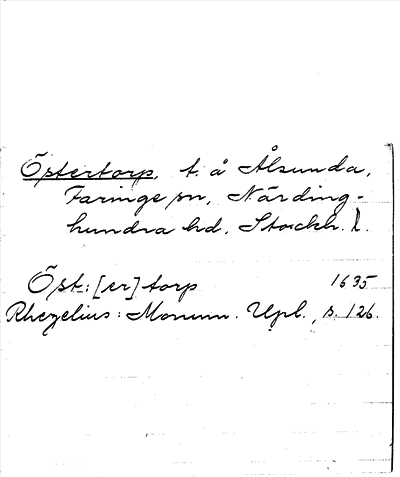 Östertorp, t. å Ålsunda,
Faringe sn, Närding-
hundra hd, Stockh. l.
Öst:[er]torp 1635
Rhezelius: Monum. Upl., s. 126.